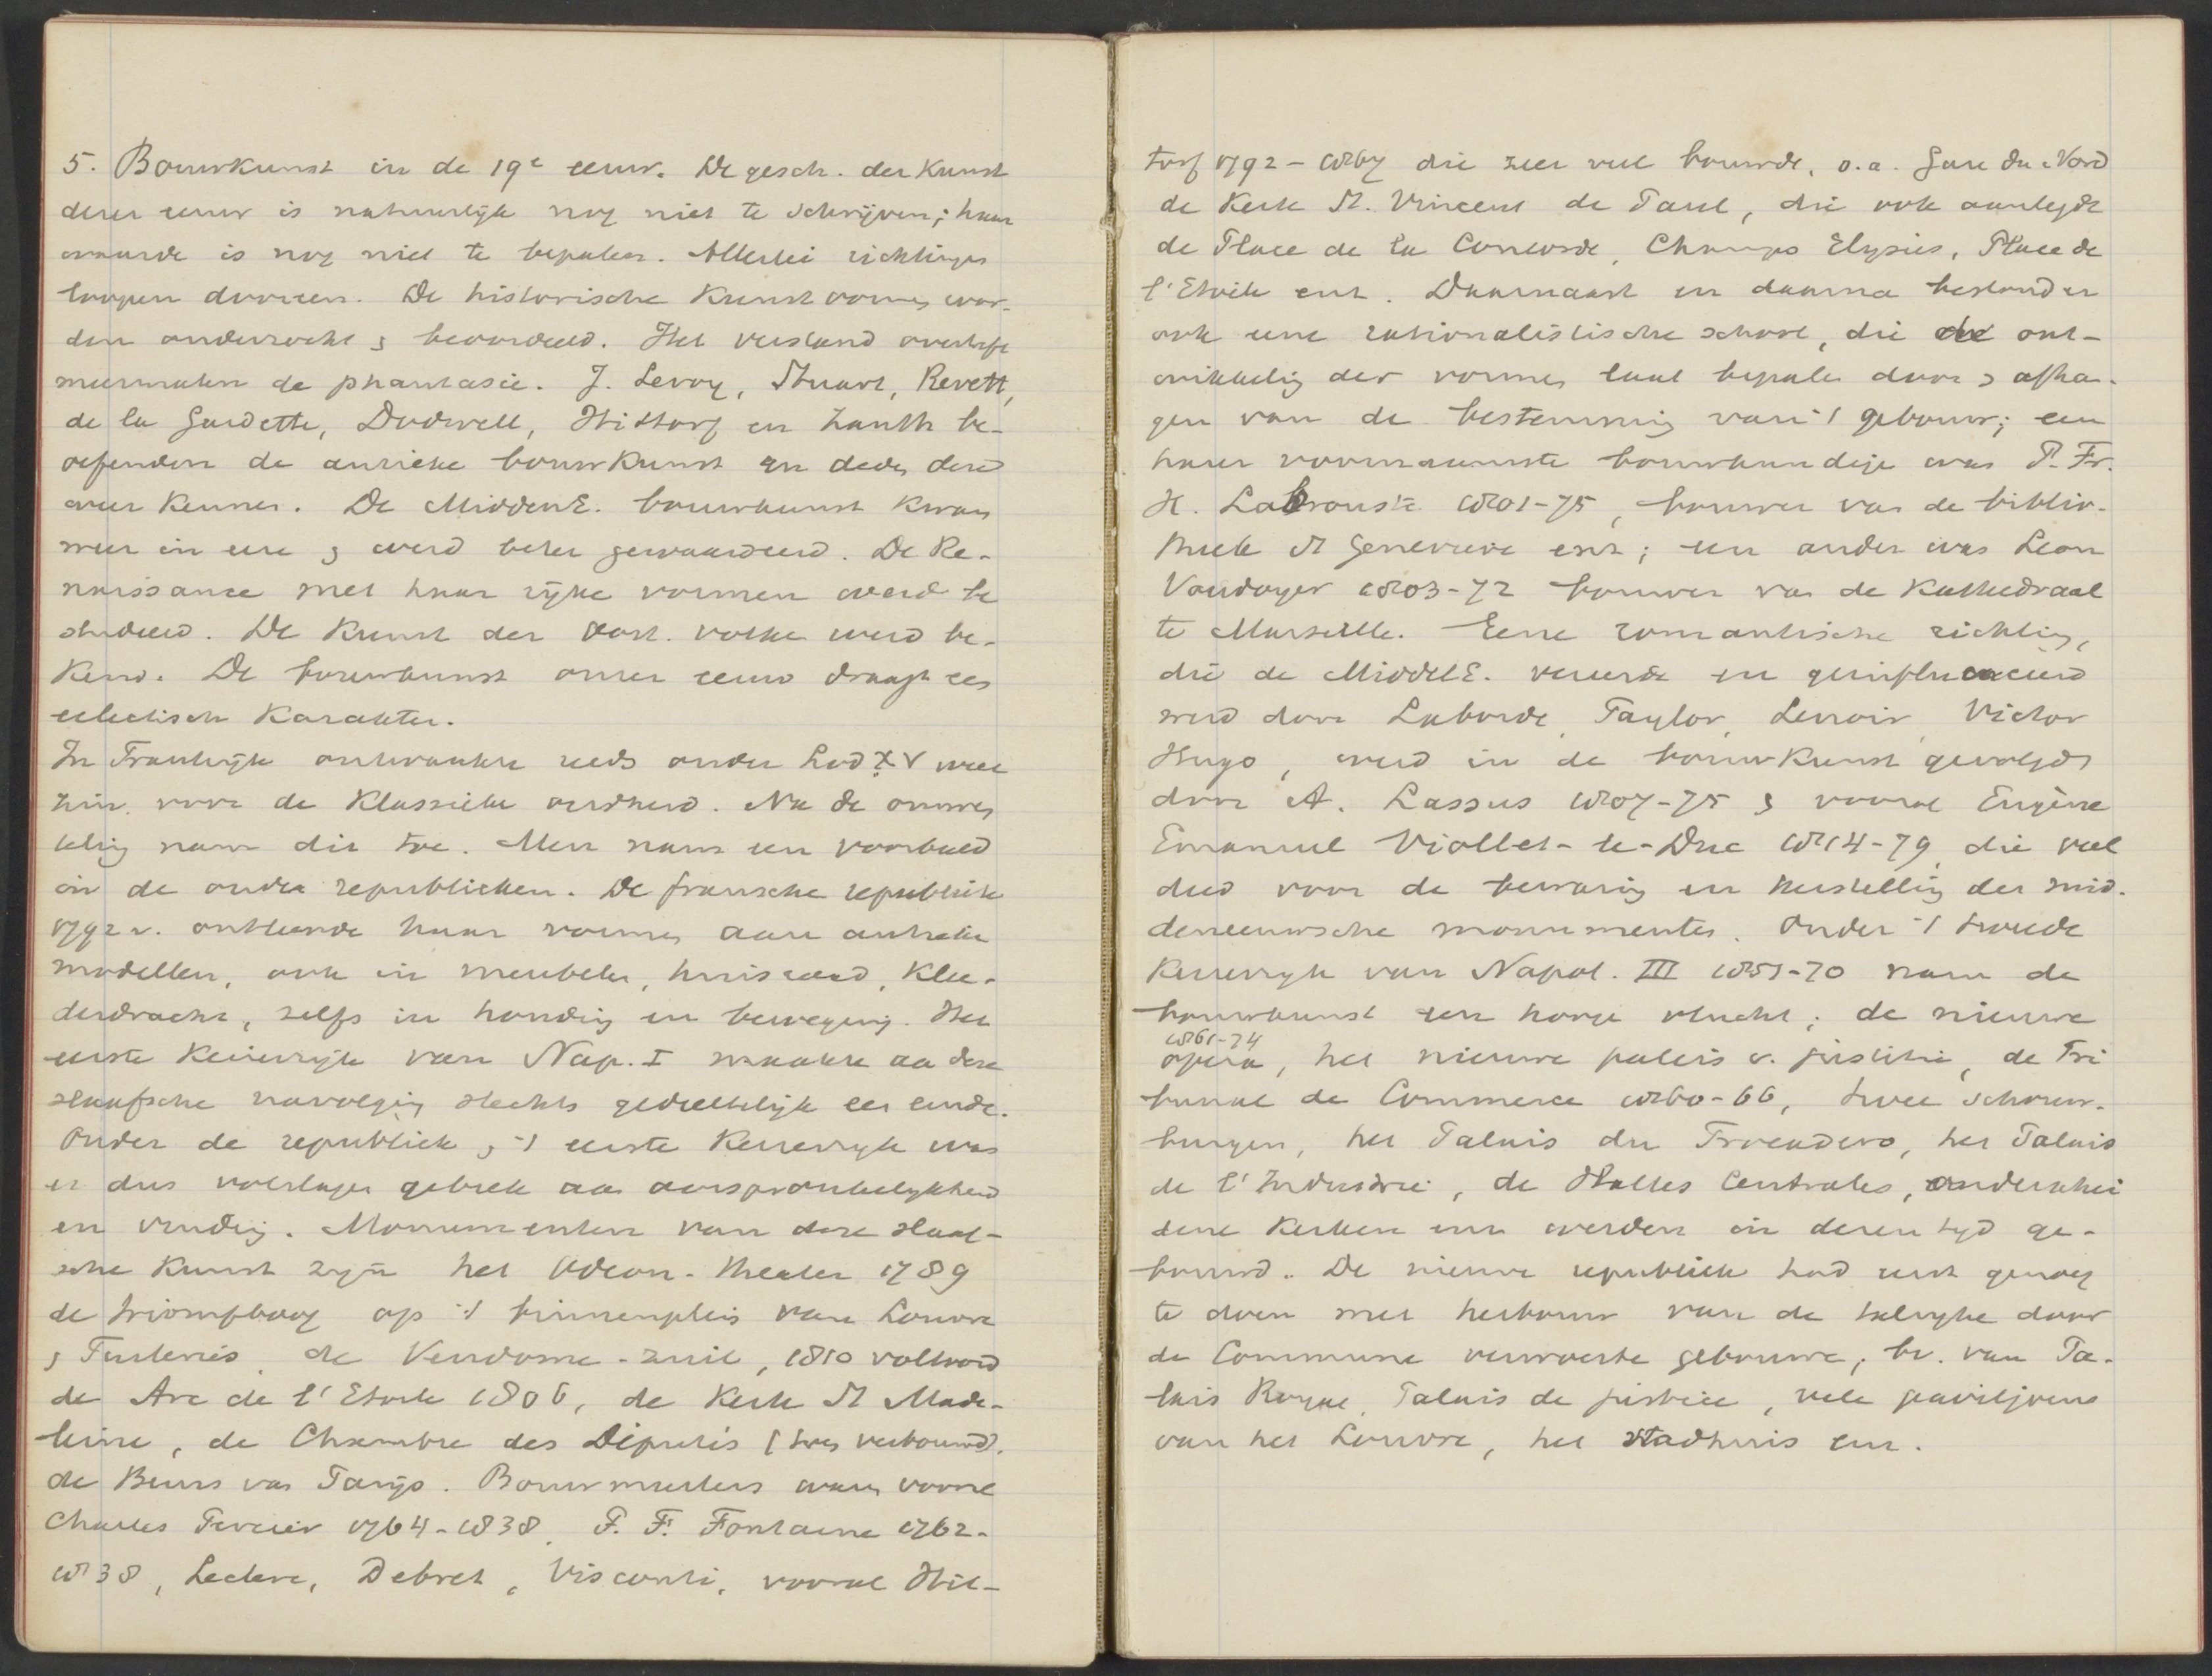 5. Bouwkunst in de 19e eeuw. De gesch. der Kunst
dezer eeuw is natuurlijk nog niet te schrijven; haar
waarde is nog niet te bepalen. Allerlei richtingen
loopen dooreen. De historische Kunstvormen wor-
den onderzocht & beoordeeld. Het verstand overtreft
meermalen de phantasie. J. Leroy, Stuart, Revett,
de la Gardette, Dodwell, Hittorf en Zanth be-
oefenden de antieke bouwkunst en deden deze
weer kennen. De MiddenE. bouwkunst kwam
weer in eere & werd beter gewaardeerd. De Re-
naissance met haar rijke vormen werd be
studeerd. De Kunst der Oost. volken werd be-
kend. De bouwkunst onzer eeuw draagt een
eclectisch Karakter.
In Frankrijk ontwaakte reeds onder Lod XV weer
zin voor de Klassieke oudheid. Na de omwen
teling nam die toe. Men nam een voorbeeld
in de oude republieken. De fransche republiek
1792 v. ontleende haar vormen aan antieke
modellen, ook in meubelen, huisraad, Klee-
derdracht, zelfs in houding en beweging. Het
eerste Keizerrijk van Nap. I maakte aan deze
slaafsche navolging slechts gedeeltelijk een einde.
Onder de republiek & 't eerste Keizerrijk was
er dus volslagen gebrek aan oorspronkelijkheid
en vinding. Monumenten van deze slaaf-
sche Kunst zijn het Odeon-theater 1789
de triomfboog op 't binnenplein van Louvre
& Tuileries, de Vendome-zuil, 1810 voltooid
de Arc de l'Etoile 1806, de Kerk St Made-
leine, de Chambre des Députés (twee verbouwd),
de Beurs van Parijs. Bouwmeesters waren vooral
Charles Percier 1764-1838, P. F. Fontaine 1762-
1838, Leclere, Debret, Visconti, vooral Hit-
torf 1792-1867 die zeer veel bouwde, o.a. Gare du Nord
de Kerk St. Vincent de Paul, die ook aanlegde
de Place de la Concorde, Champs Elysées, Place de
l'Etoile enz. Daarnaast en daarna bestond er
ook eene rationalistische school, die de ont-
wikkeling der vormen laat bepalen door & afhan-
gen van de bestemming van 't gebouw; een
harer voornaamste bouwkundige was P. Fr.
H. Labrouste 1801-75, bouwer van de biblio-
theek St Genevieve enz; een ander was Leon
Vaudoyer 1803-72 bouwer van de Kathedraal
te Marseille. Eene romantische richting,
die de MiddelE. vereerde en geinfluenceerd
werd door Laborde, Taylor, Lenoir, Victor
Hugo, werd in de bouwkunst gevolgd
door A. Lassus 1807-75 & vooral Eugène
Emanuel Viollet-le-Duc 1814-79, die veel
deed voor de bewaring en herstelling der mid-
deneeuwsche monumenten. Onder 't tweede
Keizerrijk van Napol. III 1851-70 nam de
bouwkunst een hooge vlucht; de nieuwe
1861-74
opera, het nieuwe paleis v. justitie, de Tri
bunal de Commerce 1860-66, twee schouw-
burgen, het Palais du Trocadero, het Palais
de l'Industrie, de Halles Centrales, onderschei
dene Kerken enz werden in dezen tijd ge-
bouwd. De nieuwe republiek had eerst genoeg
te doen met herbouw van de talrijke door
de Commune verwoeste gebouwen, bv. van Pa-
lais Royal, Palais de justice, vele paviljoens
van het Louvre, het stadhuis enz.